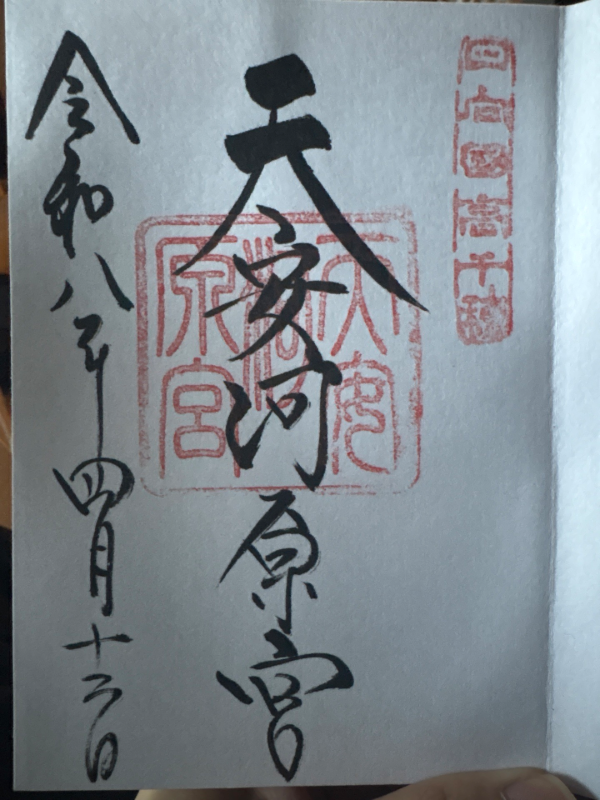 日向國高千穂
天安河原宮
天安河原宮
令和八年四月十六日